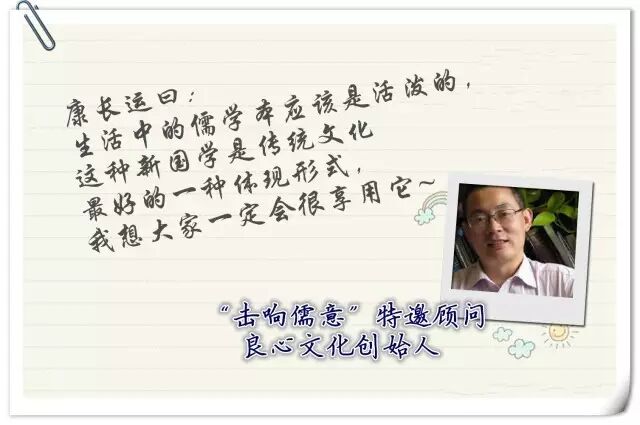 康长运曰：
生活中的儒学本应该是活泼的，
这种新国学是传统文化
最好的一种体现形式，
我想大家一定会很享用它~
“击响儒意”特邀顾问
良心文化创始人